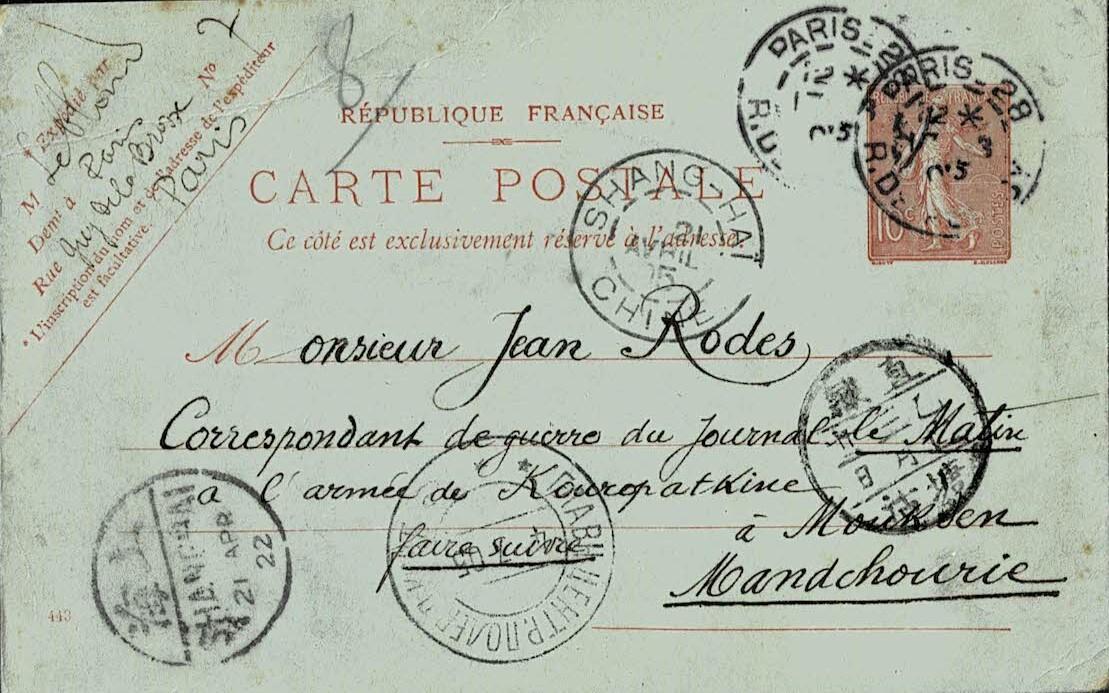 8
* Expédié par
M Lefron
Demt à Paris
Rue Guy de la Brosse No 7
Paris
* L'inscription du nom et de l'adresse de l'expéditeur
est facultative.
RÉPUBLIQUE FRANÇAISE
CARTE POSTALE
Ce côté est exclusivement réservé à l'adresse.
PARIS_28
12 *
05
PARIS_28
12 *
3
05
10 c
POSTES
SHANG-HAI
21
AVRIL
05
CHINE
Monsieur Jean Rodes
Correspondant de guerre du Journal le Matin
a l'armée de Kouropatkine
à Moukden
faire suivre
Mandchourie
上海
SHANGHAI
21 APR
22
ГЛАВН. ЦЕНТР. ПОЛЕВ.
05
443